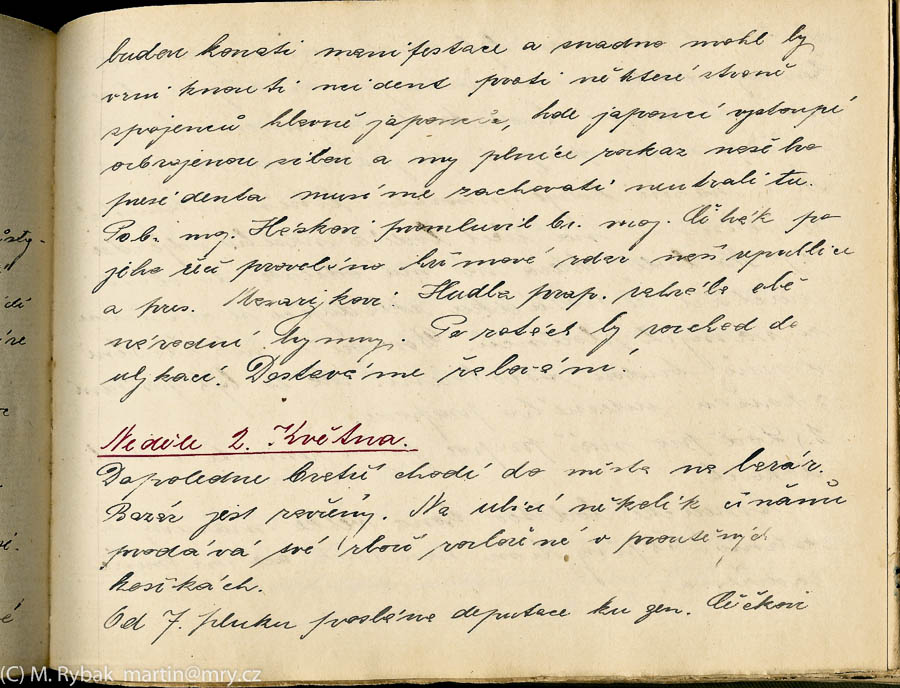 budou konati manifestace a snadno mohl by
vzniknouti incident proti některé straně
spojenců hlavně japonců, kde japonci vystoupí
ozbrojenou silou a my plníce rozkaz našeho
presidenta musíme zachovati neutralitu.
Po br. maj. promluvil br. maj. Čihák po
jeho řeči provoláno hřmové zdar naší republice
a pres. Masarykovi. Hudba prap. zahrála obě
národní hymny. Po rotách by rozchod do
Dostáváme žalování.
Neděle 2. Května.
Dopoledne bratří chodí do města na bazár.
Bazár jest zavřený. Na ulici několik číňánů
prodává své zboží rozložené v proutěných
košíkách.
Od 7. pluku poslána deputace ku gen. Čečkovi
(C) M. Rybak martin@mry.cz